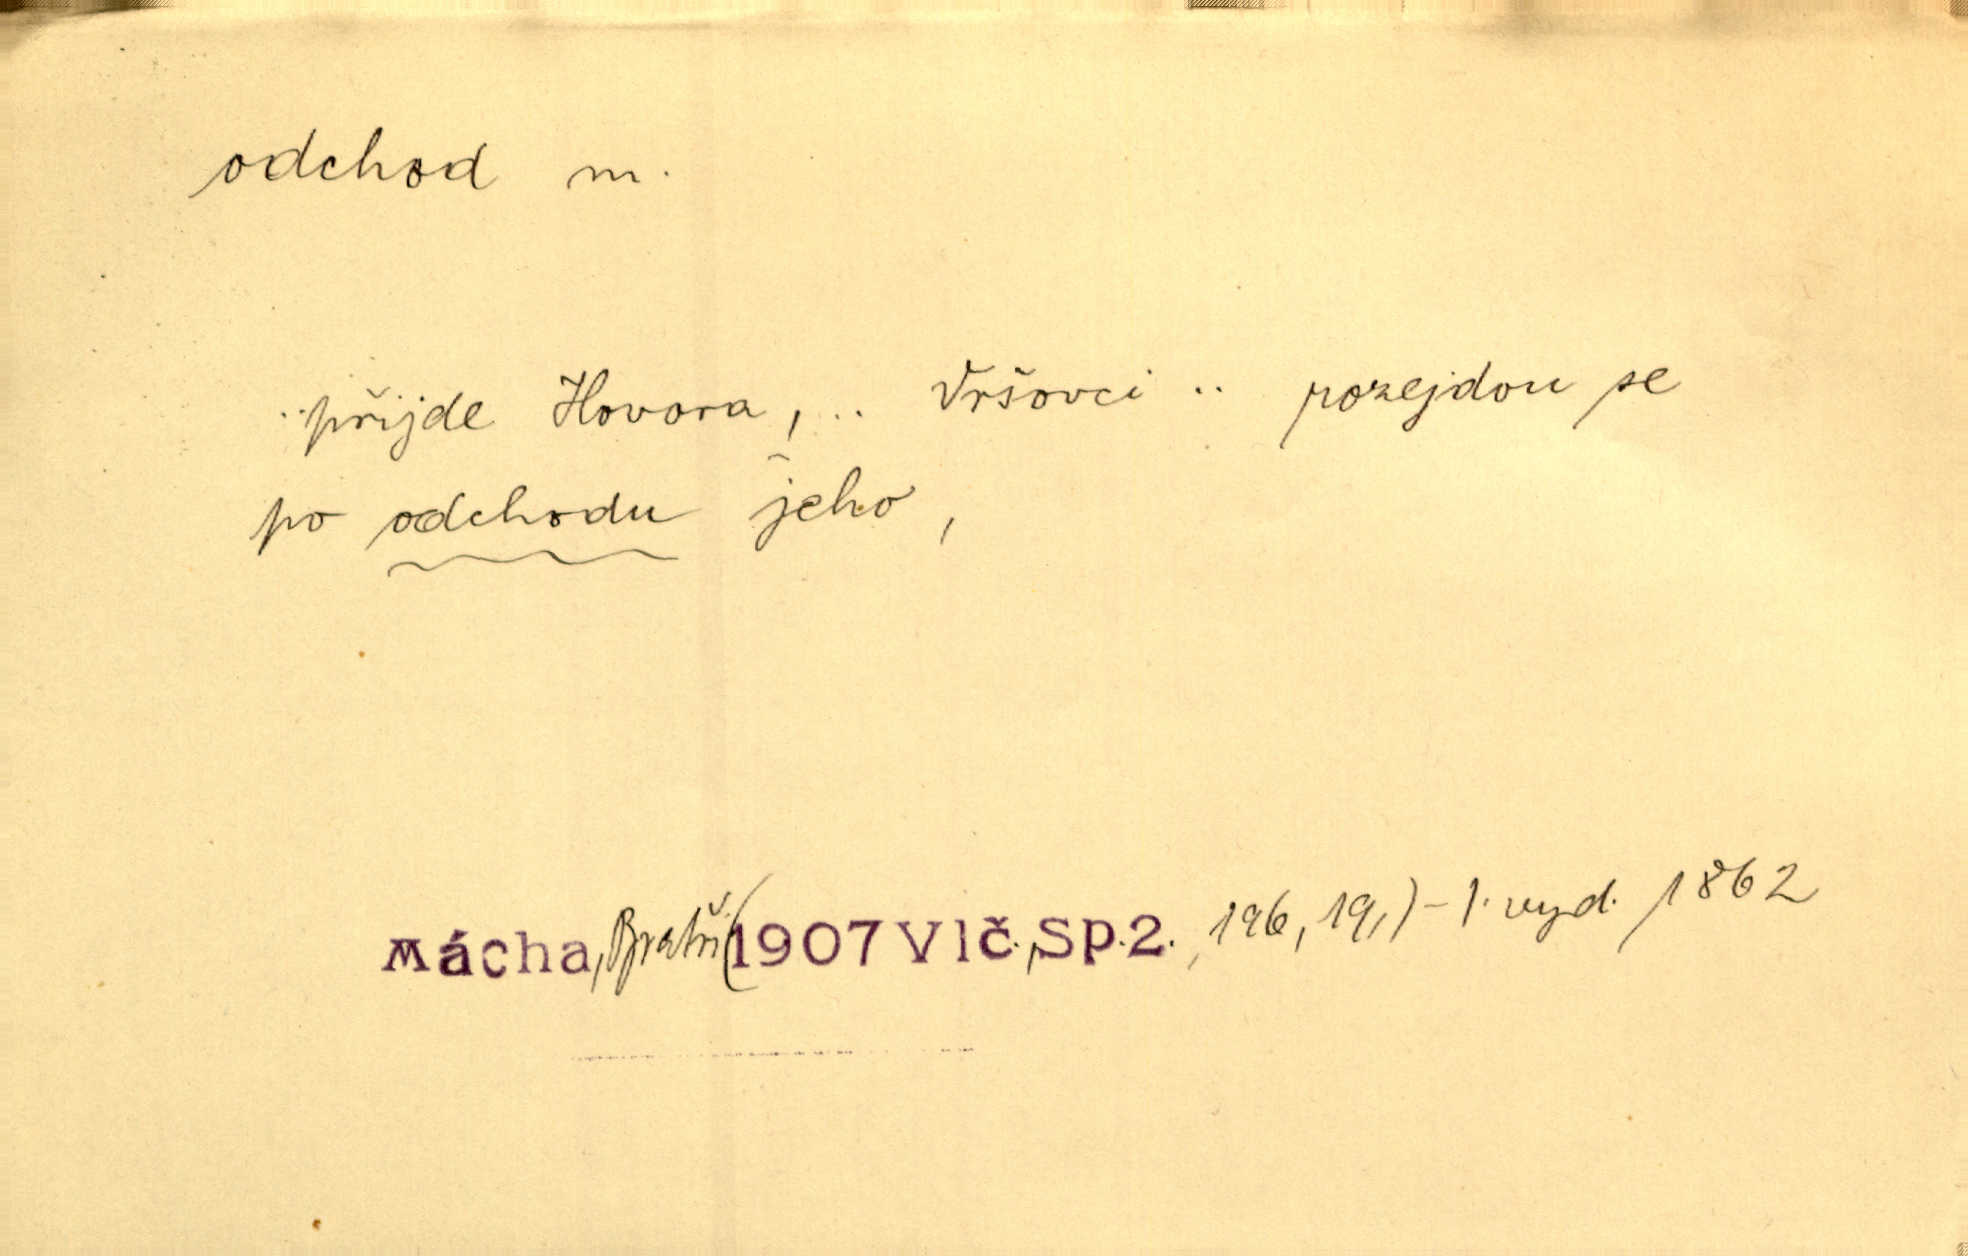 odchod m.
..přijde Hovora, .. Vršovci .. rozejdou se
po odchodu jeho,
Mácha, Bratři (1907 Vlč., Sp. 2., 196, 19,) - 1. vyd. 1862